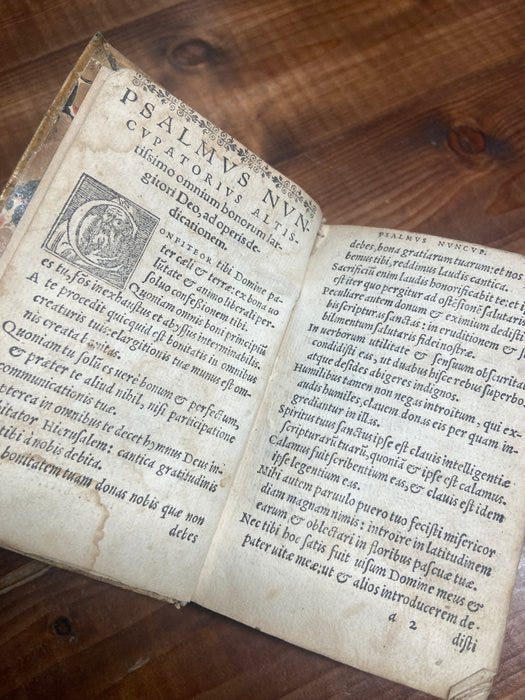 PSALMVS NVN-
CVPATORIVS ALTIS-
tissimo omnium bonorum lar-
gitori Deo, ad operis de-
dicationem.
CONFITEOR tibi Domine pa-
ter cœli & terræ: ex bona uo
lūtate & animo liberali per-
soluo confeßionem tibi.
Quoniam omnis boni principiū
es tu, fōs inexhaustus et abyssus interminabilis.
A te procedit quicquid est bonitatis in omnibus
creaturis tuis: elargitionis tuæ munus est om-
nis creata bonitas.
Quoniam tu solus es uerè bonum & perfectum,
& præter te aliud nihil, nisi participatione
communicationis tuæ.
pterea in omnibus te decet hymnus Deus in-
itator Hierusalem: cantica gratitudinis
tibi à nobis debita.
bonitatem tuam donas nobis quæ non
debes
PSALMVS NVNCVP.
debes, bona gratiarum tuarum: et nos
bemus tibi, reddimus laudis cantica.
Sacrificiū enim laudis honorificabit te: et
est iter quo pergitur ad ostēsionē salutaris
Peculiare autem donum & eximium dedisti
bis scripturas sanctas: in eruditionem &
bilimentum salutaris fidei nostræ.
In uerborum utilitate & sensuum obscurita
condidisti eas, ut duabus hisce rebus superbo
atque desides abigeres indignos.
Humilibus tamen non negas introitum, qui ex-
audis humiles, clauem donas eis per quam in-
grediantur in illas.
Spiritus tuus sanctus ipse est clauis intelligentiæ
scripturarū tuarū, quoniā & ipse est calamus.
Calamus fuit scribentium eas, & clauis est idem
ipse legentium eas.
Nihi autem paruulo puero tuo fecisti misericor
diam magnam nimis: introire in latitudinem
earum & oblectari in floribus pascuæ tuæ.
Nec tibi hoc satis fuit uisum Domine meus &
pater uitæ meæ: ut & alios introducerem de-
a 2
disti